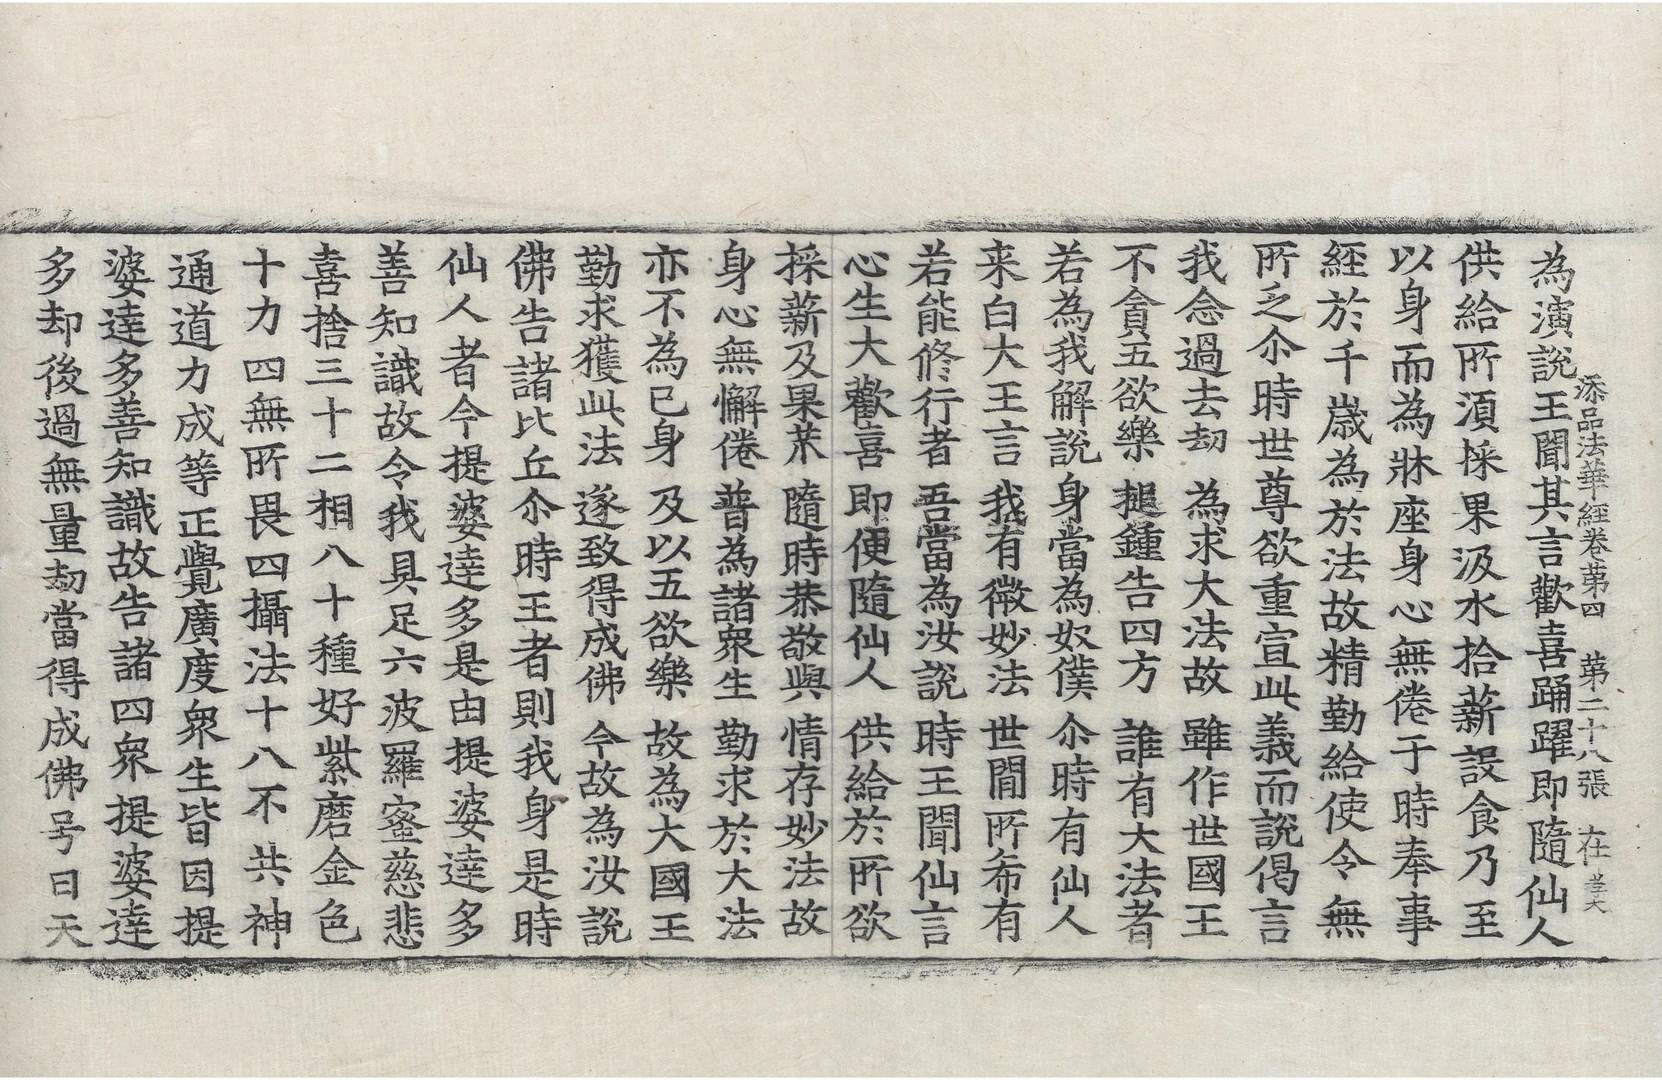 添品法華經卷苐四　苐二十八張　在
為演說王聞其言歡喜踊躍即隨仙人
供給所湏採果汲水拾薪設食乃至
以身而為牀座身心無倦于時奉事
經於千歲為於法故精勤給使令無
所乏尒時世尊欲重宣此義而說偈言
我念過去劫　為求大法故　雖作世國王
不貪五欲樂　搥鍾告四方　誰有大法者
若為我解說　身當為奴僕　尒時有仙人
来白大王言　我有微妙法　世間所希有
若能修行者　吾當為汝說　時王聞仙言
心生大歡喜　即便隨仙人　供給於所欲
採薪及果蓏　隨時恭敬與　情存妙法故
身心無懈倦　普為諸衆生　勤求於大法
亦不為己身　及以五欲樂　故為大國王
勤求獲此法　遂致得成佛　今故為汝說
佛告諸比丘尒時王者則我身是時
仙人者今提婆達多是由提婆達多
善知識故令我具足六波羅蜜慈悲
喜捨三十二相八十種好紫磨金色
十力四無所畏四攝法十八不共神
通道力成等正覺廣度衆生皆因提
婆達多善知識故告諸四衆提婆達
多却後過無量劫當得成佛号曰天